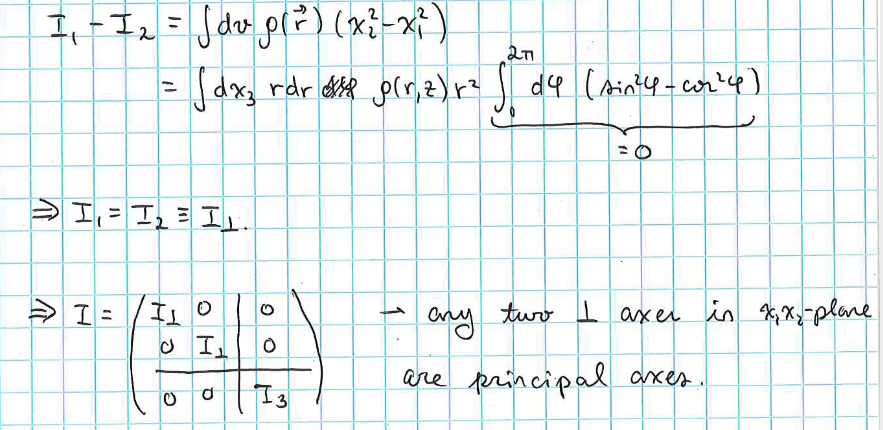 I₁ - I₂ = ∫dv ρ(r⃗) (x₂² - x₁²)
= ∫dx₃ rdr ρ(r,z) r² ∫₀^2π dφ (sin²φ - cos²φ)
= 0
⇒ I₁ = I₂ ≡ I⊥.
⇒ I = ( I⊥ 0 | 0 → any two ⊥ axes in x₁x₂-plane
0 I⊥ | 0
are principal axes.
0 0 | I₃ )